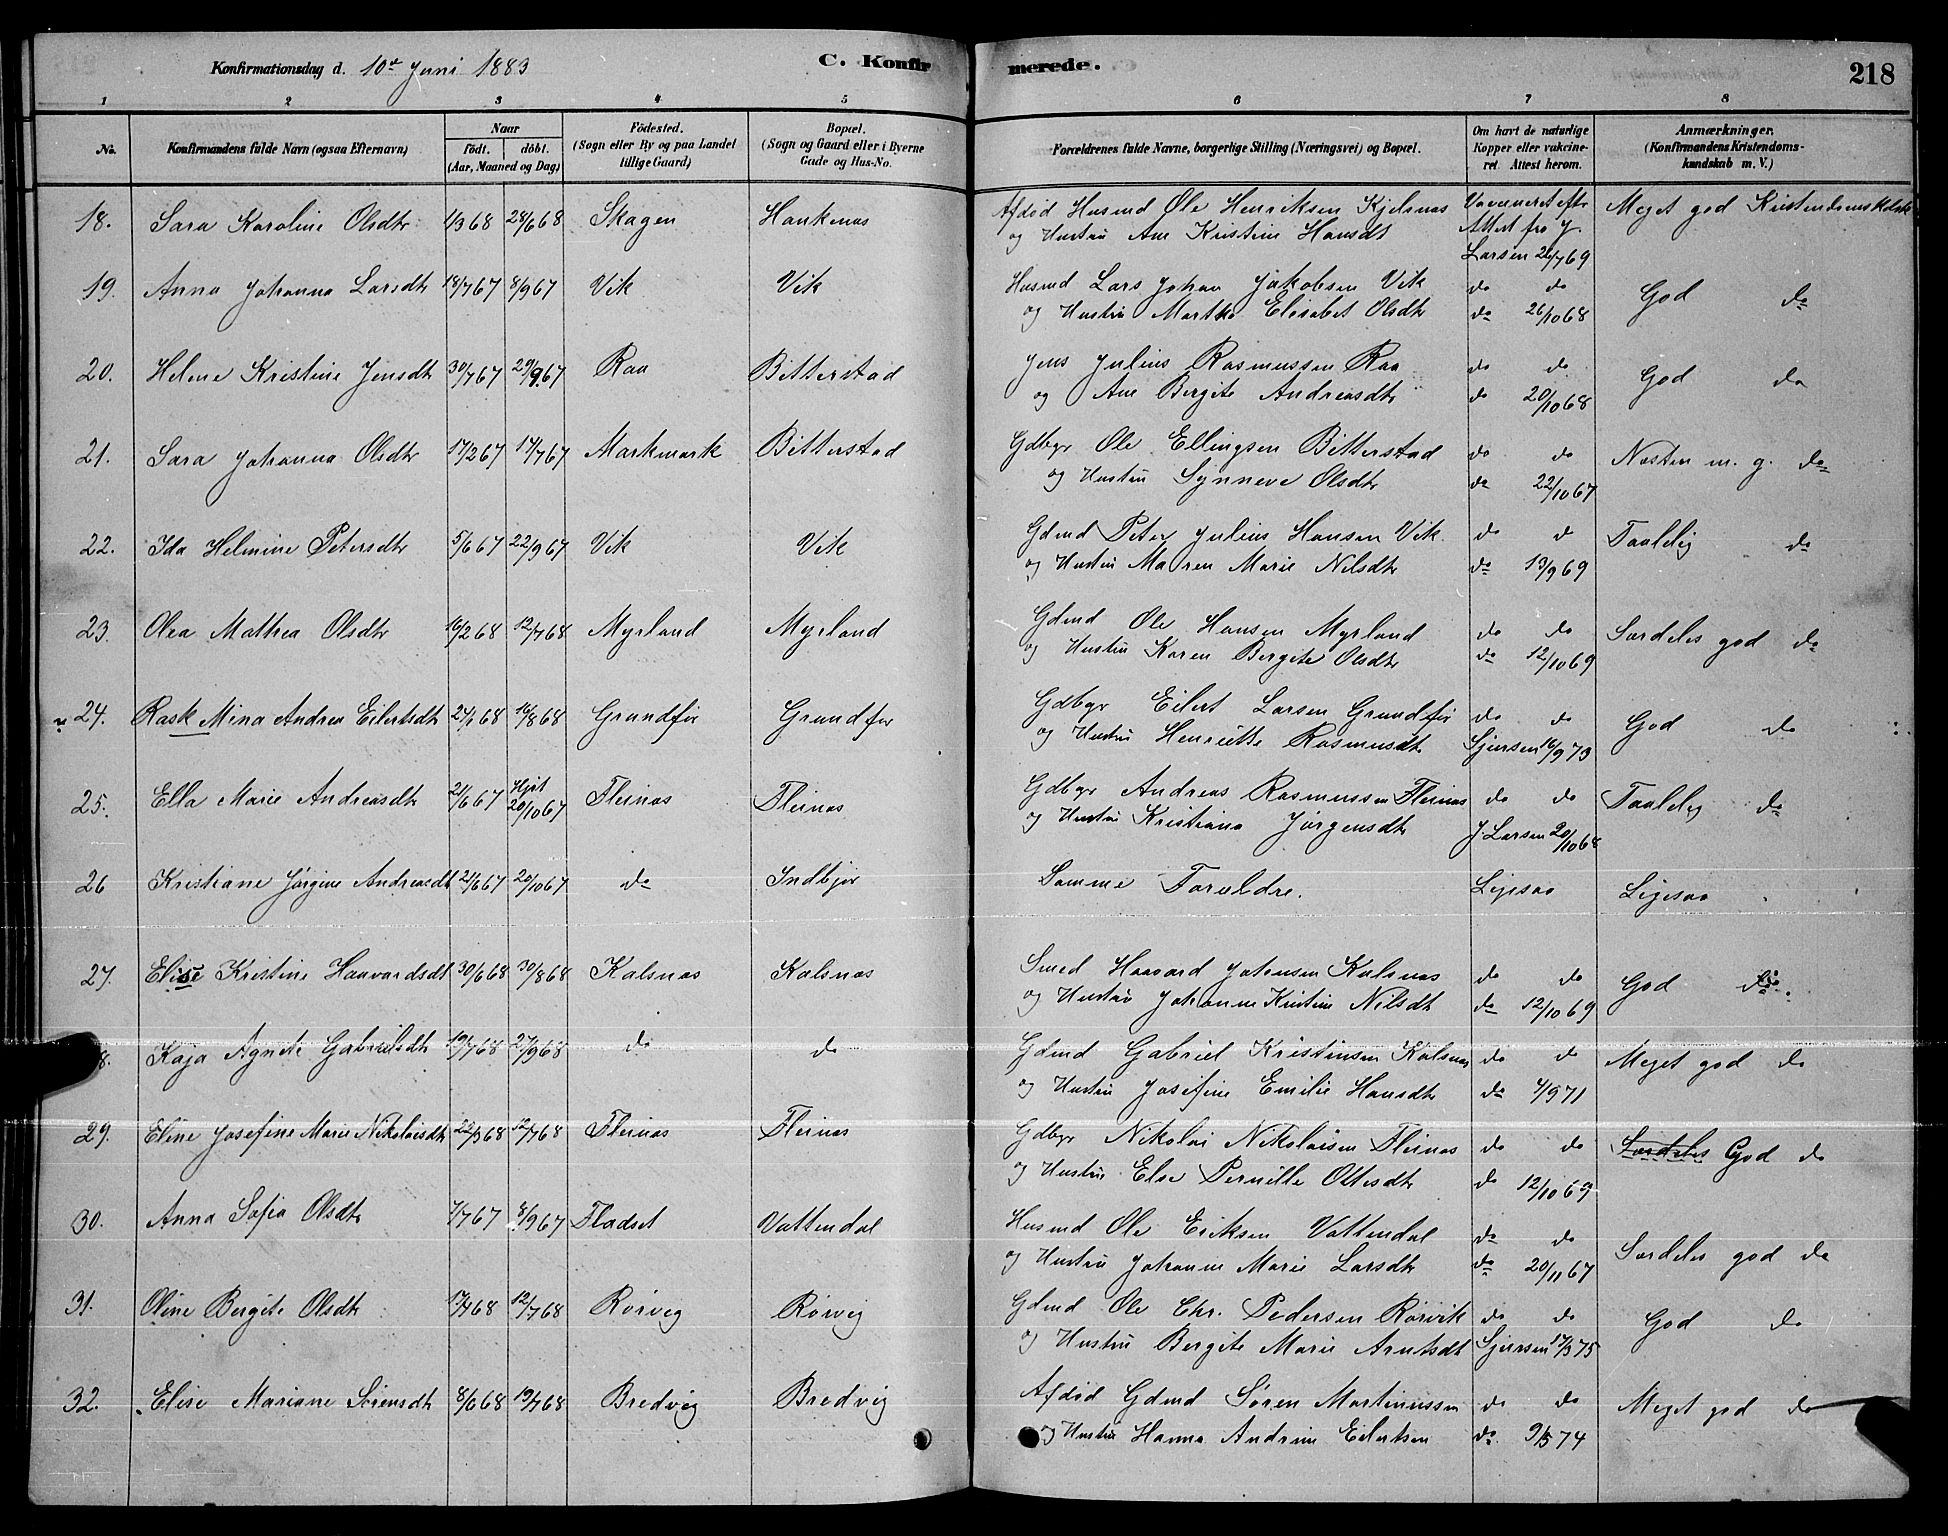 Konfirmationsdag d. 10de Juni 1883
C. Konfir merede. 218
1 2 3 4 5 6 7 8
No.
Konfirmandens fulde Navn (ogsaa Efternavn)
Naar
födt. döbt.
(Aar, Maaned og Dag)
Födested.
(Sogn eller By og paa Landet
tillige Gaard)
Bopæl.
(Sogn og Gaard eller i Byerne
Gade og Hus-No.
Forældrenes fulde Navne, borgerlige Stilling (Næringsvei) og Bopæl.
Om havt de naturlige
Kopper eller vakcine-
ret. Attest herom.
Anmærkninger.
(Konfirmandens Kristendoms-
kundskab m. V.)
18. Sara Karoline Olsdtr 1/3 68 28/6 68 Skagen Haukenæs Afdød Husmd Ole Henriksen Kjelsnæs Vaccineret efter Meget god Kristendomskdsk
og Hustru Ane Kristine Hansdt Attest fra J.
Larsen 26/7 69
19. Anna Johanna Larsdtr 18/7 67 8/9 67 Vik Vik Husmd Lars Johan Jakobsen Vik do do God do
og Hustru Martha Elisabet Olsdtr do 26/10 68
20. Helene Kristine Jensdtr 30/7 67 29/9 67 Raa Bitterstad Jens Julius Rasmussen Raa do do God do
og Ane Bergite Andreasdtr do 20/10 68
21. Sara Johanna Olsdtr 17/2 67 17/7 67 Markmark Bitterstad Gdbgr Ole Ellingsen Bitterstad do do Næsten m. g. do
og Hustru Synneve Olsdtr do 22/10 67
22. Ida Helmine Petersdtr 5/6 67 22/9 67 Vik Vik Gdmd Peter Julius Hansen Vik do do Taalelig do
og Hustru Maren Marie Nilsdtr do 13/9 69
23. Olea Mathea Olsdtr 16/2 68 12/7 68 Myrland Myrland Gdmd Ole Hansen Myrland do do Særdeles god do
og Hustru Karen Bergite Olsdtr do 12/10 69
24. Rask Mina Andrea Eilertsdtr 24/1 68 16/8 68 Grundfør Grundfør Gdbgr Eilert Larsen Grundfør do do God do
og Hustru Henriette Rasmusdtr Sjursen 16/9 73
25. Ella Marie Andreasdtr 21/6 67 Hjdt 20/10 67 Fleinæs Fleinæs Gdbgr Andreas Rasmussen Fleinæs do do Taalelig do
og Hustru Kristiana Jørgensdtr J Larsen 20/10 68
26 Kristiane Jørgine Andreasdtr 21/6 67 20/10 67 do Indbjør Samme Forældre. Ligesaa Ligesaa
27. Elise Kristine Haavardsdt 30/6 68 30/8 68 Kalsnæs Kalsnæs Smed Haavard Johansen Kalsnæs do do God do.
og Hustru Johanne Kristine Nilsdt do 12/10 69
8. Kaja Agnete Gabrielsdtr 19/7 68 27/9 68 do do Gdmd Gabriel Kristensen Kalsnæs do do Meget god do
og Hustru Josefine Emilie Hansdtr do 4/9 71
29. Eline Josefine Marie Nikolaisdt 22/3 68 12/7 68 Fleinæs Fleinæs Gdbgr Nikolai Nikolaisen Fleinæs do do Særdeles God do
og Hustru Else Pernille Ottesdtr do 12/10 69
30. Anna Sofia Olsdtr 4/7 67 8/9 67 Fladset Vattendal Husmd Ole Eriksen Vattendal do do Særdeles god do
og Hustru Johanne Marie Larsdtr do 20/11 67
31. Oline Bergite Olsdtr 17/4 68 12/7 68 Rørvig Rørvig Gdmd Ole Chr. Pedersen Rørvik do do God do
og Hustru Bergite Marie Arntsdt Sjursen 17/3 75
32. Elise Mariane Sörensdtr 8/6 68 19/7 68 Bredvig Bredvig Afdød Gdmd Søren Martinussen do do Meget god do
og Hustru Hanna Andrine Eilertsen do 9/5 74